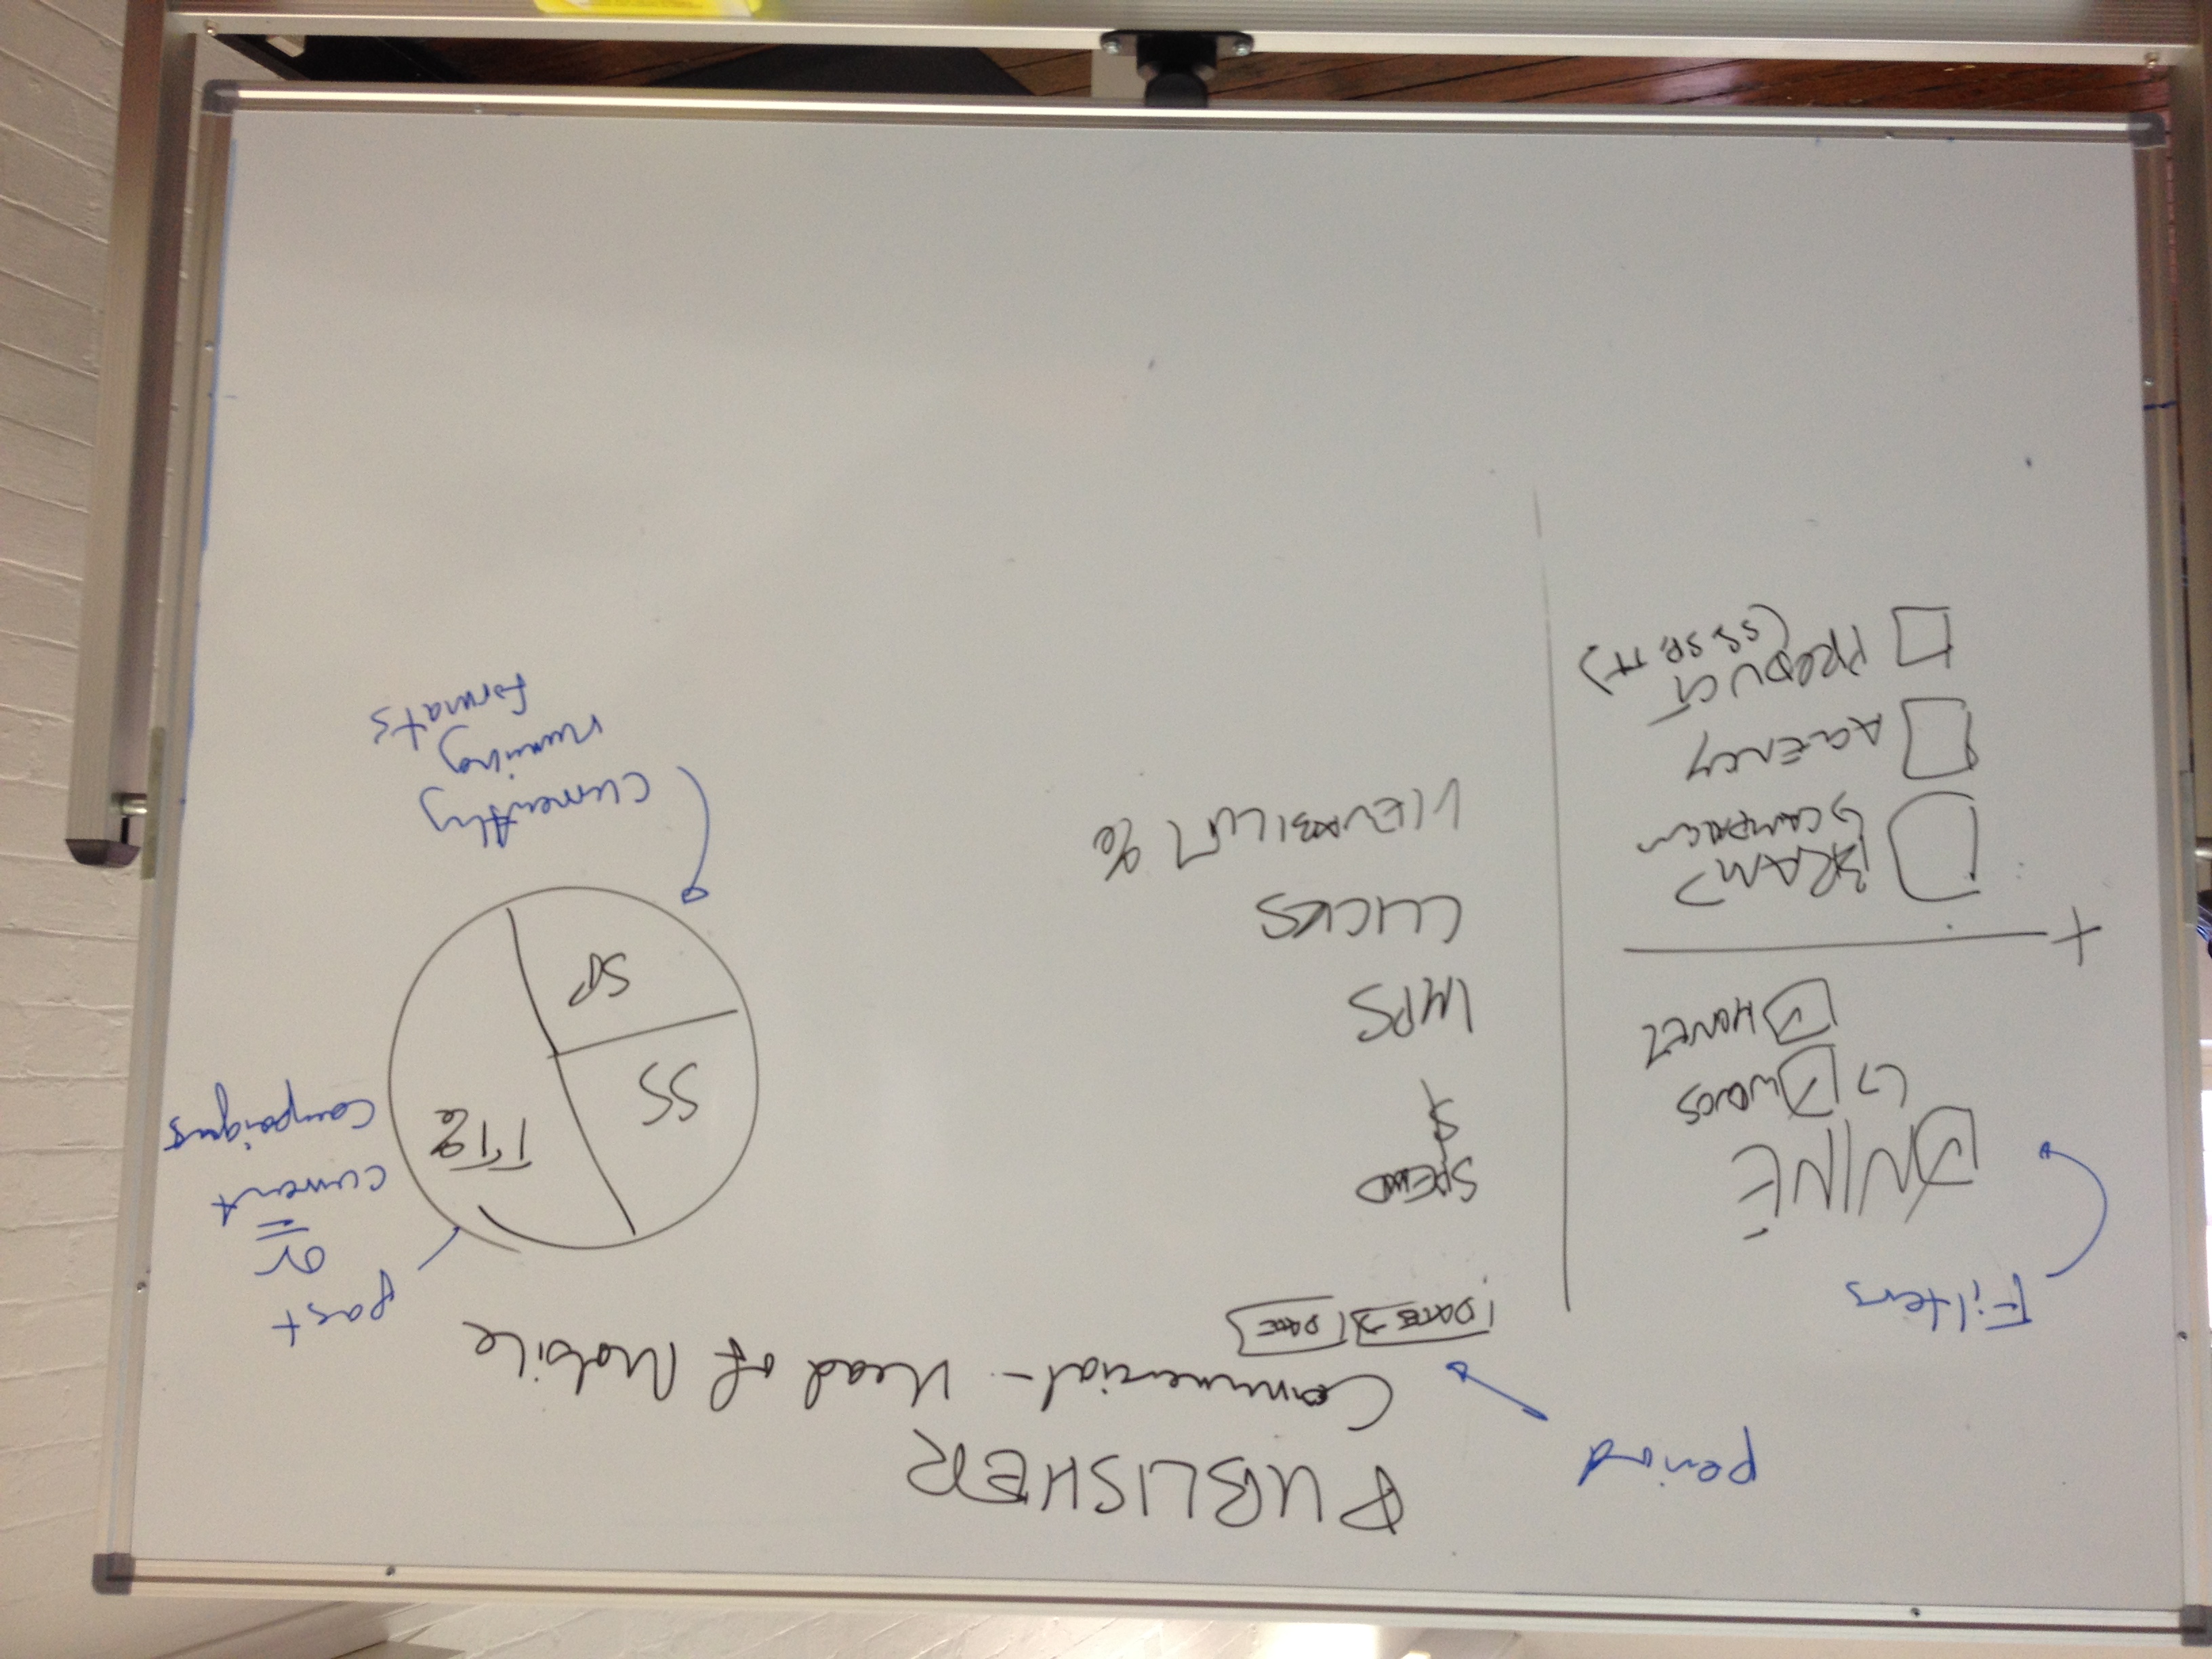 PUBLISHER
Commercial - Head of Mobile
period
DATE → DATE
Filters
NINE
↳ WWOS
MONEY
+
BRAND
↳ CAMPAIGN
AGENCY
PRODUCT
(SS, SP, TT)
SPEND
$
IMPS
CLICKS
VIEWABILITY %
SS
TT%
SP
past
or
current
campaigns
currently
running
formats